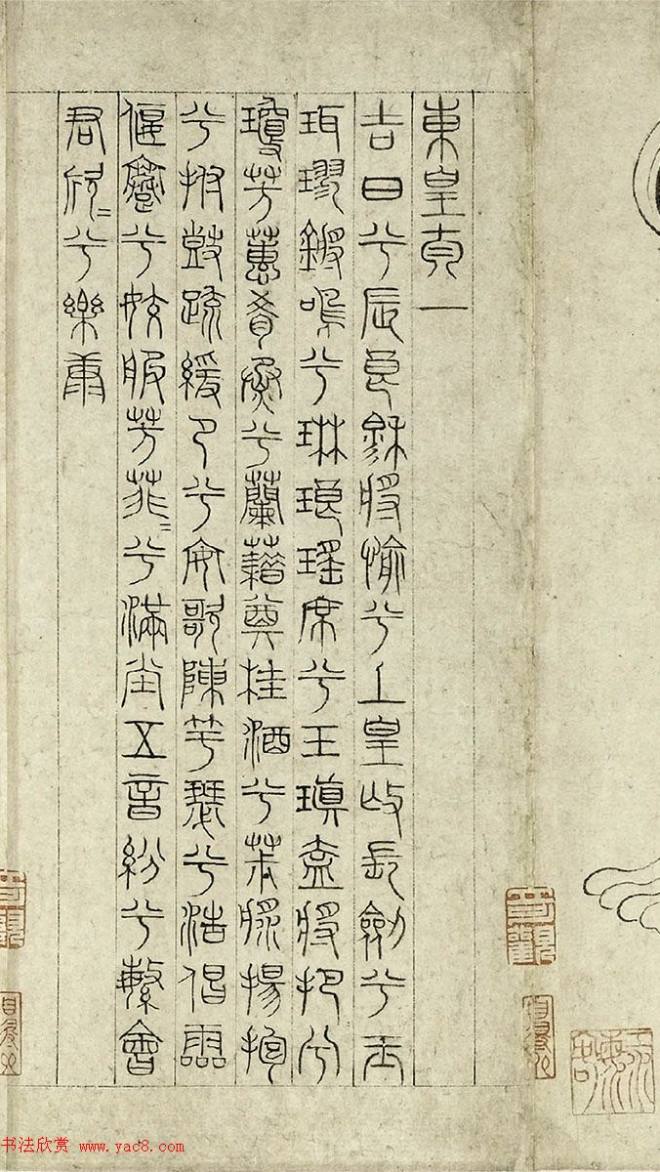 東皇太一
吉日兮辰良穆將愉兮上皇撫長劍兮玉
珥璆鏘鳴兮琳琅瑤席兮玉瑱盍將把兮
瓊芳蕙肴烝兮蘭藉奠桂酒兮椒漿揚枹
兮拊鼓疏緩節兮安歌陳竽瑟兮浩倡靈
偃蹇兮姣服芳菲〻兮滿堂五音紛兮繁會
君欣〻兮樂康
书法欣赏 www.yac8.com